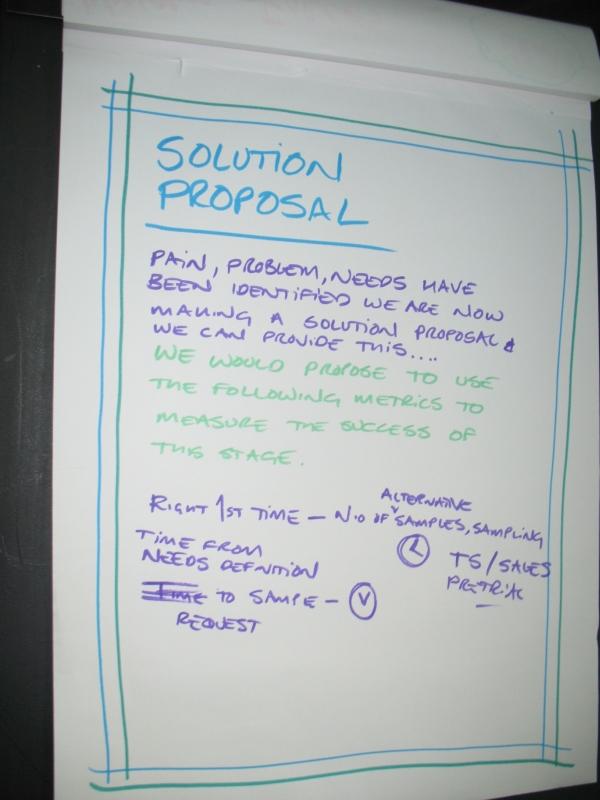 SOLUTION
PROPOSAL
PAIN, PROBLEM, NEEDS HAVE
BEEN IDENTIFIED WE ARE NOW
MAKING A SOLUTION PROPOSAL &
WE CAN PROVIDE THIS....
WE WOULD PROPOSE TO USE
THE FOLLOWING METRICS TO
MEASURE THE SUCCESS OF
THIS STAGE.
ALTERNATIVE
RIGHT 1ST TIME – N.O OF SAMPLES, SAMPLING
TIME FROM
NEEDS DEFNITION
L TS/SALES
PRETRIAL
TIME TO SAMPLE – V
REQUEST